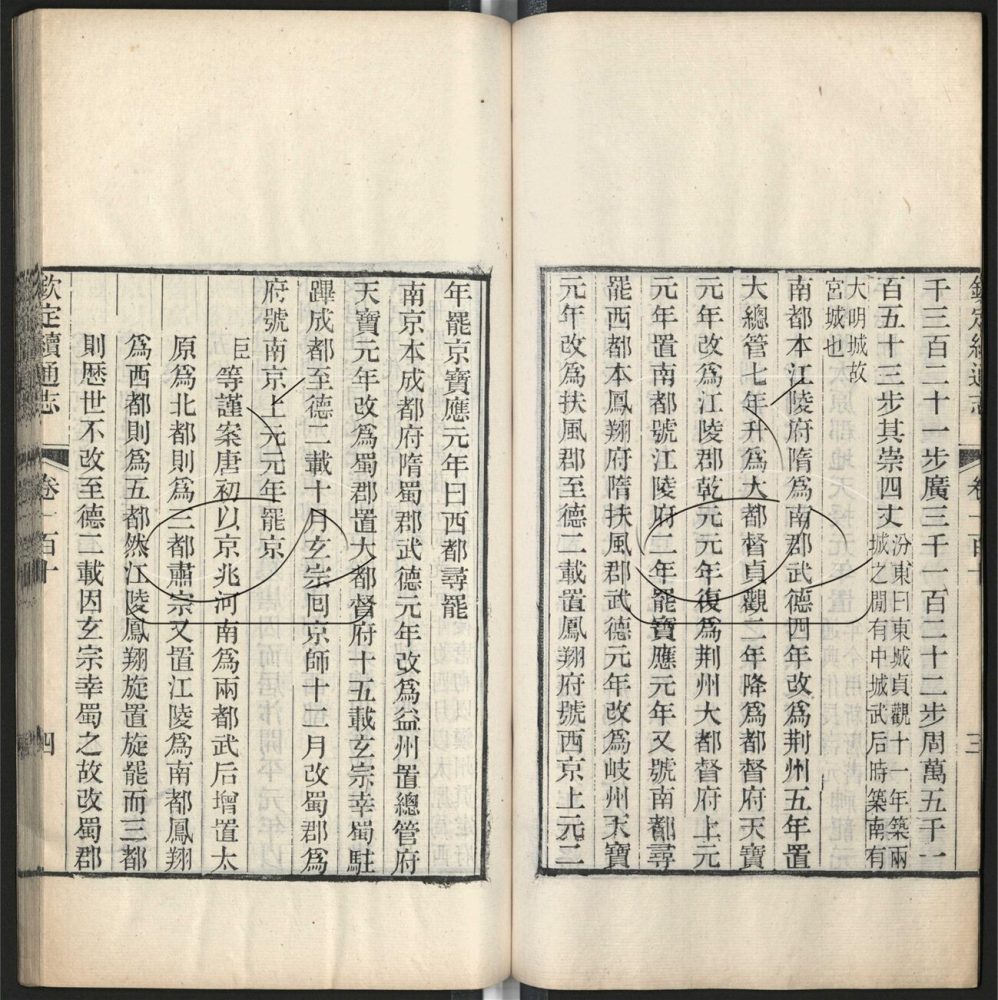 千三百二十一步廣三千一百二十二步周萬五千一
百五十三步其崇四丈汾東曰東城貞觀十一年築兩
城之閒有中城武后時築南有
大明城故
宮城也
南都本江陵府隋爲南郡武德四年改爲荆州五年置
大總管七年升爲大都督貞觀二年降爲都督府天寶
元年改爲江陵郡乾元元年復爲荆州大都督府上元
元年置南都號江陵府二年罷寶應元年又號南都尋
罷西都本鳳翔府隋扶風郡武德元年改爲岐州天寶
元年改爲扶風郡至德二載置鳳翔府號西京上元二
三
年罷京寶應元年曰西都尋罷
南京本成都府隋蜀郡武德元年改爲益州置總管府
天寶元年改爲蜀郡置大都督府十五載玄宗幸蜀駐
蹕成都至德二載十月玄宗囘京師十二月改蜀郡爲
府號南京上元元年罷京
臣等謹案唐初以京兆河南爲兩都武后增置太
原爲北都則爲三都肅宗又置江陵爲南都鳳翔
爲西都則爲五都然江陵鳳翔旋置旋罷而三都
則歴世不改至德二載因玄宗幸蜀之故改蜀郡
欽定續通志
卷一百十
四